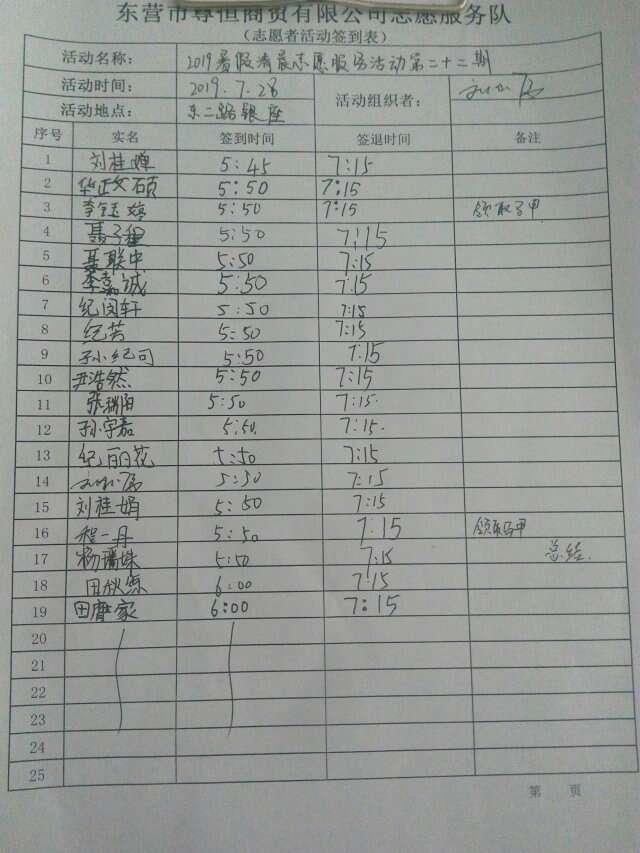 东营市尊恒商贸有限公司志愿服务队
（志愿者活动签到表）
活动名称： 2019暑假清晨志愿服务活动第二十二期
活动时间： 2019.7.28 活动组织者：
活动地点： 东二路银座
序号 实名 签到时间 签退时间 备注
1 刘桂婵 5:45 7:15
2 华政硕 5:50 7:15
3 李钰婷 5:50 7:15 领取马甲
4 聂子程 5:50 7:15
5 聂联中 5:50 7:15
6 李嘉诚 5:50 7:15
7 纪闵轩 5:50 7:15
8 纪芳 5:50 7:15
9 孙纪可 5:50 7:15
10 尹浩然 5:50 7:15
11 张 5:50 7:15.
12 孙宇嘉 5:50. 7:15.
13 纪丽花 5:50 7:15
14 5:50 7:15
15 刘桂娟 5:50 7:15
16 程一丹 5:50 7.15 领取马甲
17 杨瑞姝 5:50 7:15 总结.
18 田 6:00 7:15
19 田 家 6:00 7:15
20
21
22
23
24
25
第 页